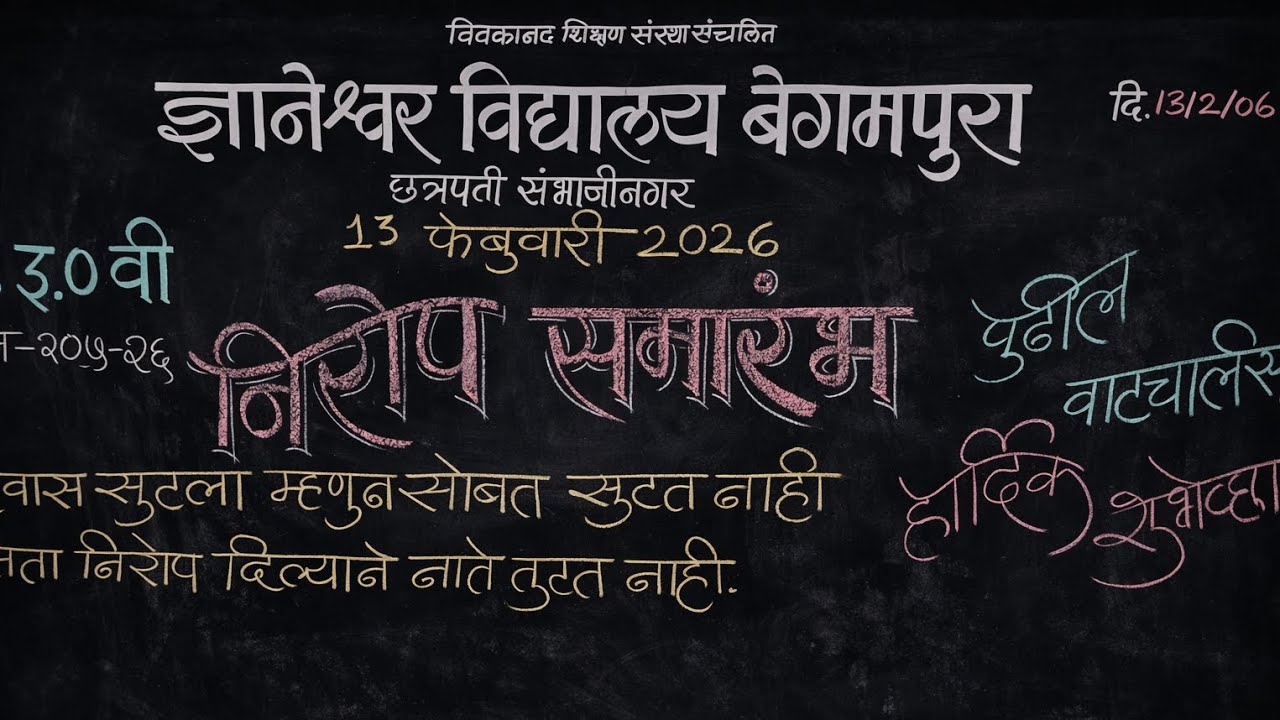 विवकानद शिक्षण संस्था संचलित
ज्ञानेश्वर विद्यालय बेगमपुरा
दि.13/2/06
छत्रपती संभाजीनगर
13 फेबुवारी 2026
इ.० वी
-२०५-२६
निरोप समारंभ
पुढील
वाटचालीस
हार्दिक
शुभेच्छा
वास सुटला म्हणुन सोबत सुटत नाही
ता निरोप दिल्याने नाते तुटत नाही.